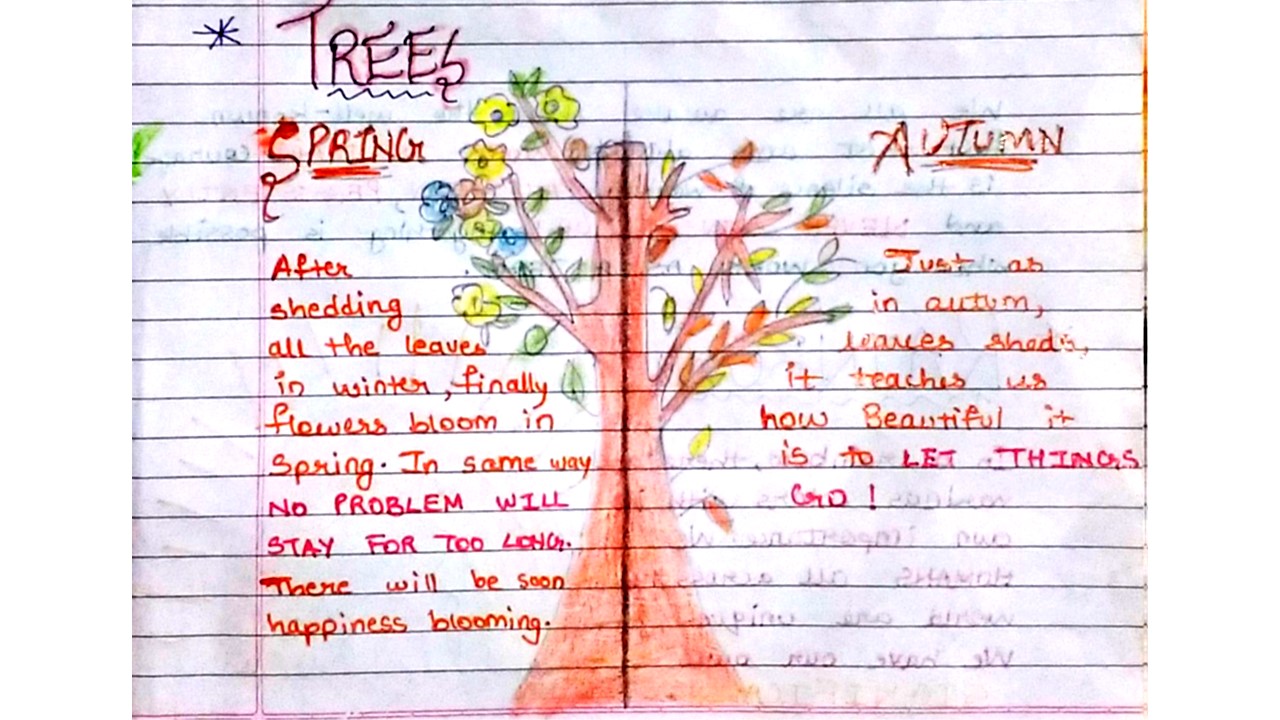 * TREES
SPRING
After
shedding
all the leaves
in winter, finally
flowers bloom in
Spring. In same way
NO PROBLEM WILL
STAY FOR TOO LONG.
There will be soon
happiness blooming.
AUTUMN
Just as
in autum,
leaves sheds,
it teaches us
how Beautiful it
is to LET THINGS
GO!